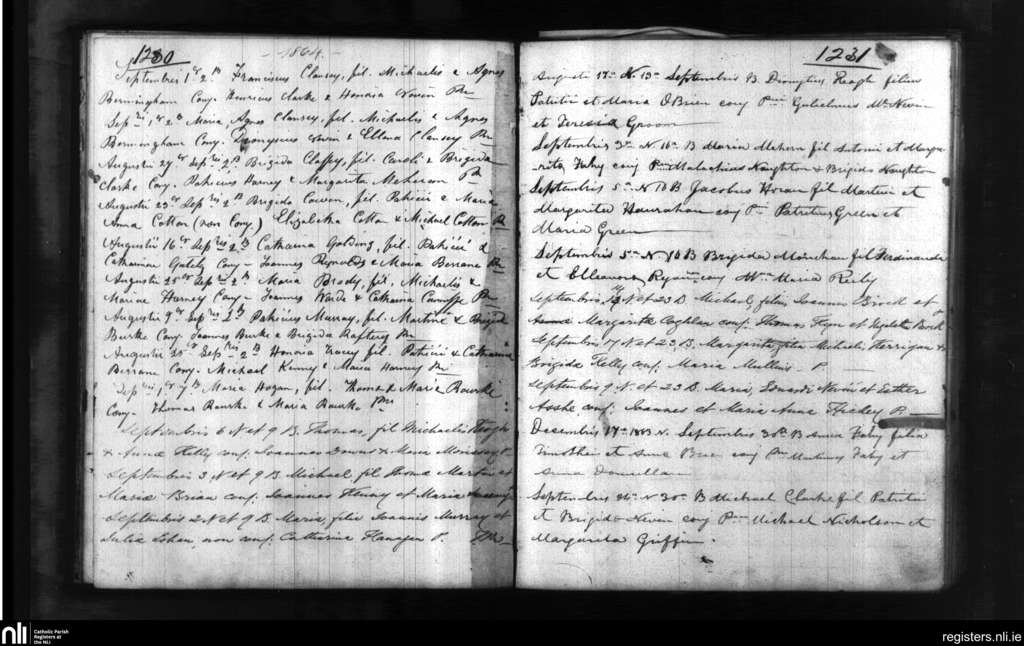 1230
- 1864 -
Septembres 1° 2 B Franciscus Clansey, fil. Michaelis & Agnes
Bermingham Conj. Henricus Clarke & Honoria Nevin Pni
Sepres 1° 2 B Maria, Agnes Clansey, fil. Michaelis & Agnes
Bermingham Conj. Dionysius Nevin & Ellena Clansey Pni
Augustii 29° Sepres 2 B Brigida Claffey, fil. Caroli & Brigida
Clarke Conj. Patricius Harney & Margarita Pni
Augustii 23° Sepres 2 B Brigida fil. Patricii & Maria
Anna Cotton (non Conj) Elizabetha Cotton & Michael Cotton P
Augustii 16° Sepres 2 B Catharina Golding, fil. Patricii &
Catharinae Gately Conj - Joannes Reynolds & Maria Berrane Pni
Augustii 25° Sepres 2 B Maria Brody, fil. Michaelis &
Mariae Harney Conj - Joannes Warde & Catharina Pni
Augustii 9° Sepres 2 B Patricius Murray, fil. Martini & Brigida
Burke Conj. Joannes Burke & Brigida Raftery Pni
Augustii 30° Sepres 2 B Honoria Tracey fil. Patricii & Catharina
Berrane Conj. Michael Kenny & Maria Harney Pni
Sepres 1° 7 B Maria Hogan, fil. Thomas & Maria Rourke
Conj. Thomas Rourke & Maria Rourke Pni
Septembris 6 N et 9 B. Thomas, fil Michaelis Keogh
& Anna Kelly conj. Joannes Downs & Maria Morissey P.
Septembris 3 N et 9 B Michael fil Thomae Martin et
Maria Brian conj. Joannes et Maria
Septembris 2 N et 9 B Maria, filia Joannis Murray et
Julia non conj. Catharina Flanagan P.
1231
Augusti 17 N. 13 Septembris B Dionysius Keogh filius
Patritii et Maria O'Brien conj Pni Gulielmus McNevin
et Teresia Groom
Septembris 3 N 16 B Maria Mahern fil Antonii et Marga-
rita Fahy conj Pni Malachius Naughton & Brigida Naughton
Septembris 5 N 18 B Jacobus Horan fil Martini et
Margarita Hanrahan conj P Patritius Green et
Maria Green
Septembris 5 N 18 B Brigida Moinehan fil Ferdinandi
et Elleanora Ryan conj Maria Reily
Septembris N et 23 B Michael, filius Joannis Bird et
Margarita Coghlan conj. Thomas Egan et
Septembris 17 N et 23 B. Margarita, filia Michaelis Kerrigan &
Brigida Kelly conj. Maria Mullins P
Septembris 9 N. et 23 B Maria, Edwardi Nevin et Esther
Asshe conj. Joannes et Maria Anna Hickey P.
Decembris 17 1863 N. Septembris 30 B Anna Fahy filia
Timothei et Anna Brien conj Pni Fahy et
Anna Donnella
Septembris 26 N 30 B Michael Clarke fil Patritii
et Brigida Nevin conj Pni Michael Nicholson et
Margarita Griffin.
nli
Catholic Parish
Registers at
the NLI
registers.nli.ie